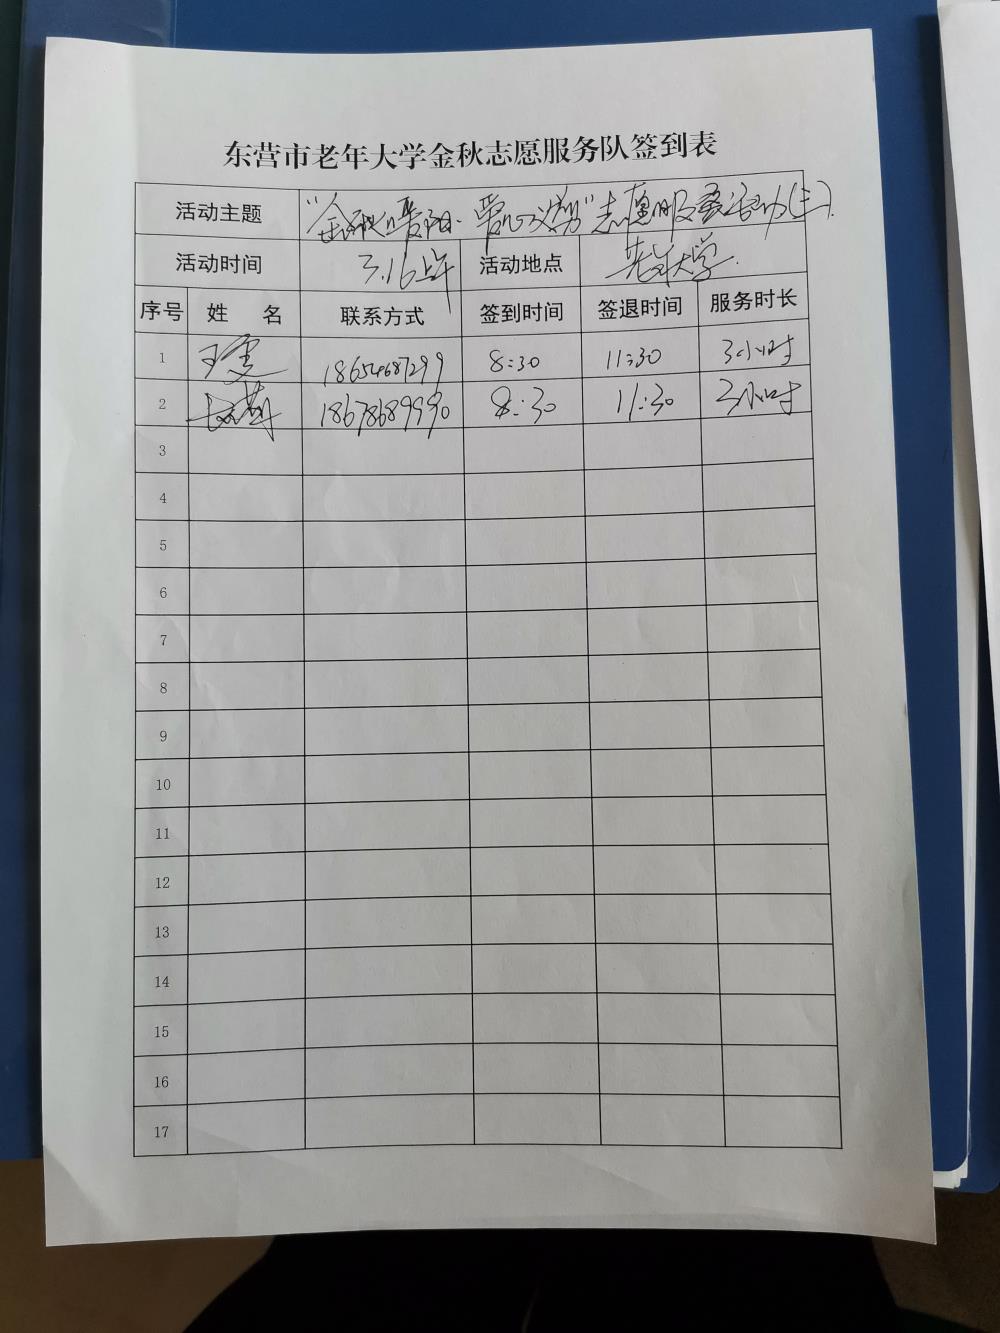 东营市老年大学金秋志愿服务队签到表
活动主题 "金秋暖夕阳·爱心义剪"志愿服务活动(三)
活动时间 3.16上午 活动地点 老年大学
序号 姓 名 联系方式 签到时间 签退时间 服务时长
1 18654687299 8:30 11:30 3小时
2 18678689990 8:30 11:30 3小时
3
4
5
6
7
8
9
10
11
12
13
14
15
16
17